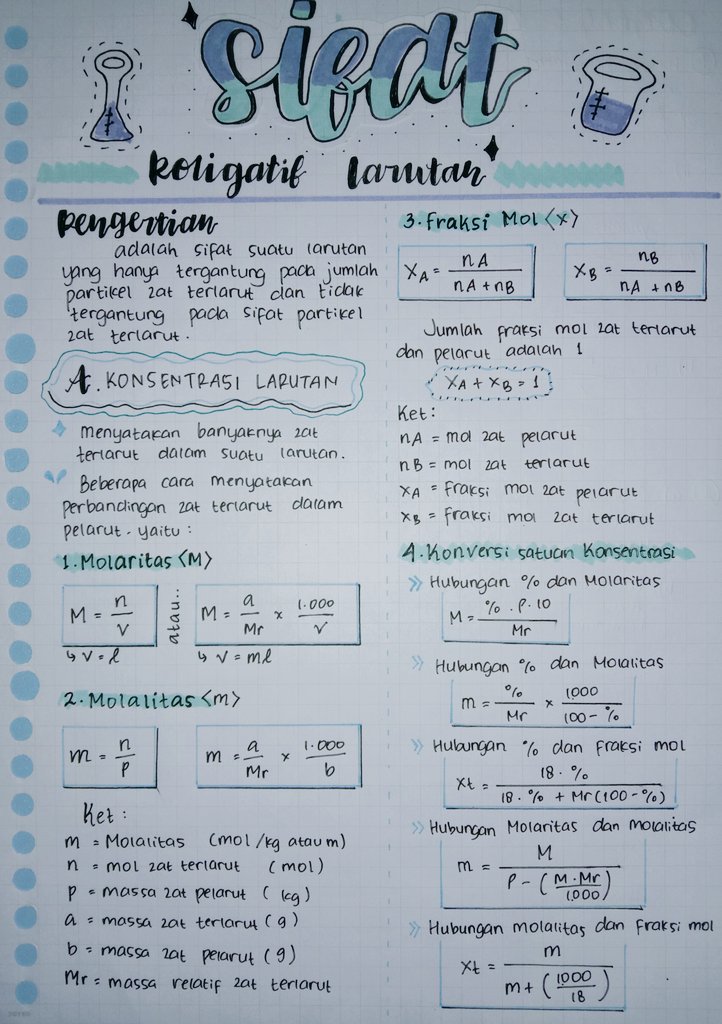 sifat
Koligatif larutan
Pengertian
adalah sifat suatu larutan
yang hanya tergantung pada jumlah
partikel zat terlarut dan tidak
tergantung pada sifat partikel
zat terlarut.
A. KONSENTRASI LARUTAN
Menyatakan banyaknya zat
terlarut dalam suatu larutan.
Beberapa cara menyatakan
perbandingan zat terlarut dalam
pelarut. yaitu :
1. Molaritas <M>
M = n / V
↳ V = l
atau..
M = a / Mr × 1.000 / V
↳ V = ml
2. Molalitas <m>
m = n / P
m = a / Mr × 1.000 / b
Ket :
m = Molalitas (mol/kg atau m)
n = mol zat terlarut (mol)
P = massa zat pelarut (kg)
a = massa zat terlarut (g)
b = massa zat pelarut (g)
Mr = massa relatif zat terlarut
3. Fraksi Mol <x>
XA = nA / nA + nB
XB = nB / nA + nB
Jumlah fraksi mol zat terlarut
dan pelarut adalah 1
XA + XB = 1
Ket :
nA = mol zat pelarut
nB = mol zat terlarut
XA = fraksi mol zat pelarut
XB = fraksi mol zat terlarut
4. Konversi satuan Konsentrasi
» Hubungan % dan Molaritas
M = % . P . 10 / Mr
» Hubungan % dan Molalitas
m = % / Mr × 1000 / 100 - %
» Hubungan % dan fraksi mol
Xt = 18 . % / 18 . % + Mr (100 - %)
» Hubungan Molaritas dan molalitas
m = M / P - (M . Mr / 1.000)
» Hubungan molalitas dan fraksi mol
Xt = m / m + (1000 / 18)